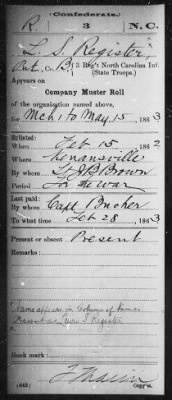 (Confederate.)
R. 3 N.C.
L S Register
Pvt, Co. B, 3 Reg't North Carolina Inf.
(State Troops.)
Appears on
Company Muster Roll
of the organization named above,
for Mch 1 to May 15, 1863
Enlisted:
When Feb 15, 1862
Where Kenansville
By whom Lt J B Brown
Period For the war
Last paid:
By whom Capt
To what time Feb 28, 1863
Present or absent Present
Remarks:
Name appears in Column of Names
Present as Register
Book mark:
(642) Copyist.